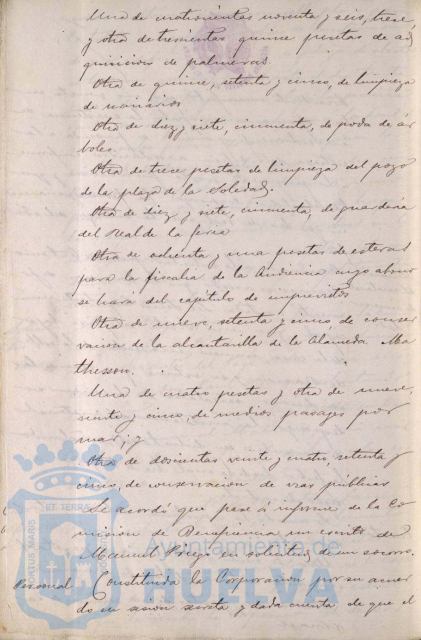 Una de cuatrocientas noventa y seis, trece,
y otra de trescientas quince pesetas de ad
quisicion de palmeras
Otra de quince, setenta y cinco, de limpieza
de
Otra de diez y siete, cincuenta, de poda de ár
boles.
Otra de trece pesetas de limpieza del pozo
de la plaza de la Soledad.
Otra de diez y siete, cincuenta, de guarderia
del Real de la feria
Otra de ochenta y una pesetas de esteras
para la fiscalia de la Audiencia cuyo abono
se hara del capitulo de imprevistos
Otra de nueve, setenta y cinco, de conser
vacion de la alcantarilla de la Alameda Ma
thesson.
Una de cuatro pesetas y otra de nueve,
siento y cinco, de medios pasages por
mar; y
Otra de doscientas veinte y cuatro, setenta y
cinco, de conservacion de vias públicas
Se acordó que pase á informe de la Co
mision de Beneficencia un escrito de
Manuel en solicitud de un socorro.
Personal Constituida la Corporacion por su acuer
do en sesion secreta y dada cuenta de que el
Ayuntamiento de
HUELVA